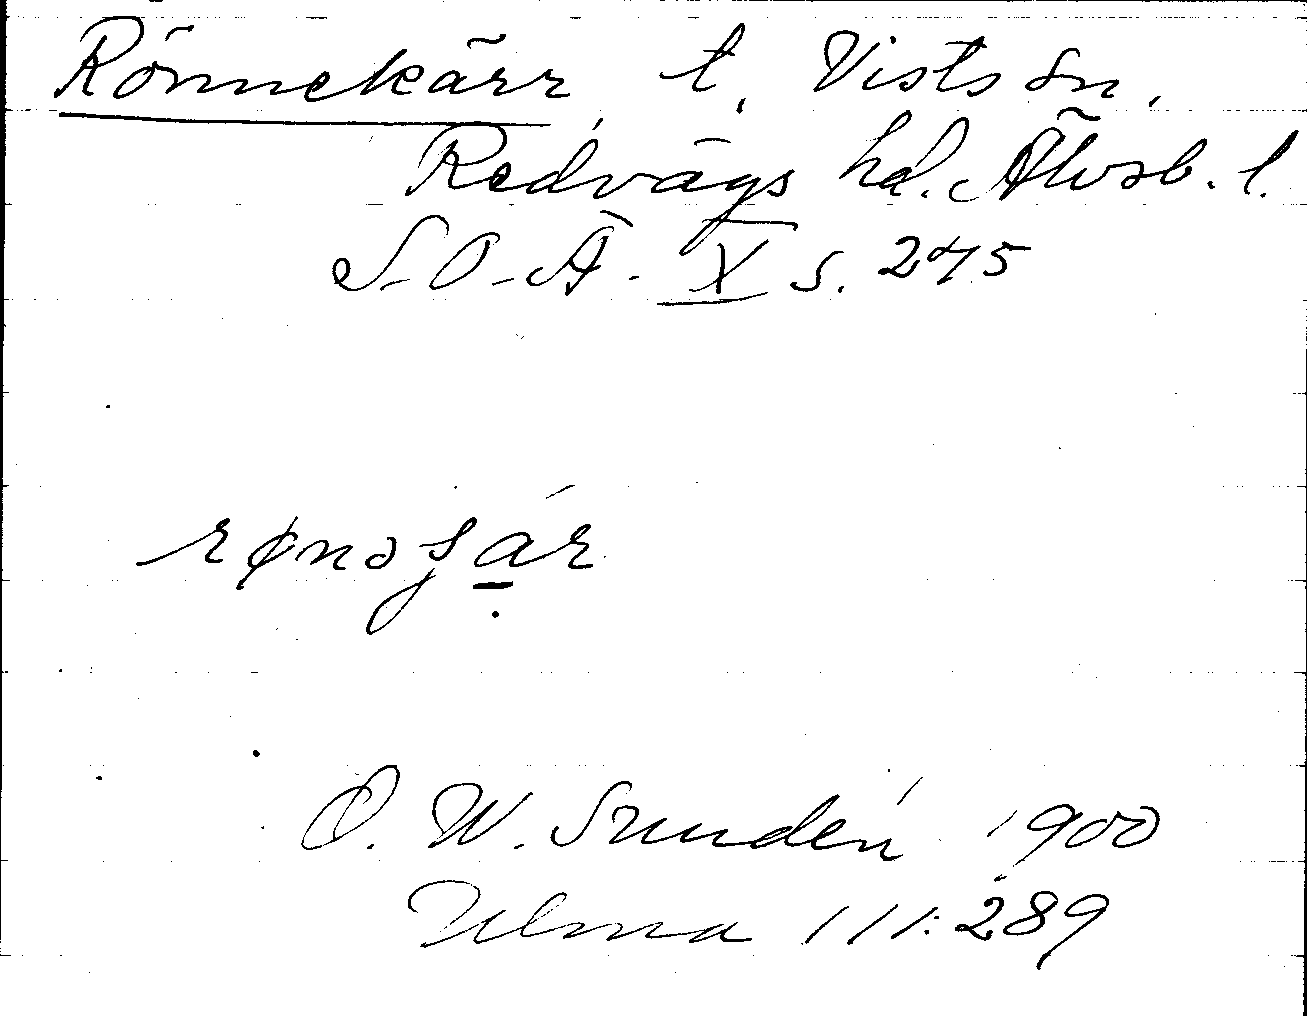 Rönnekärr, t. Vists sn.
Redvägs hd. Älvsb. l.
S-O-Ä. X s. 245
rønəʃár
D. W. Sundén 1900
Ulma 111:289